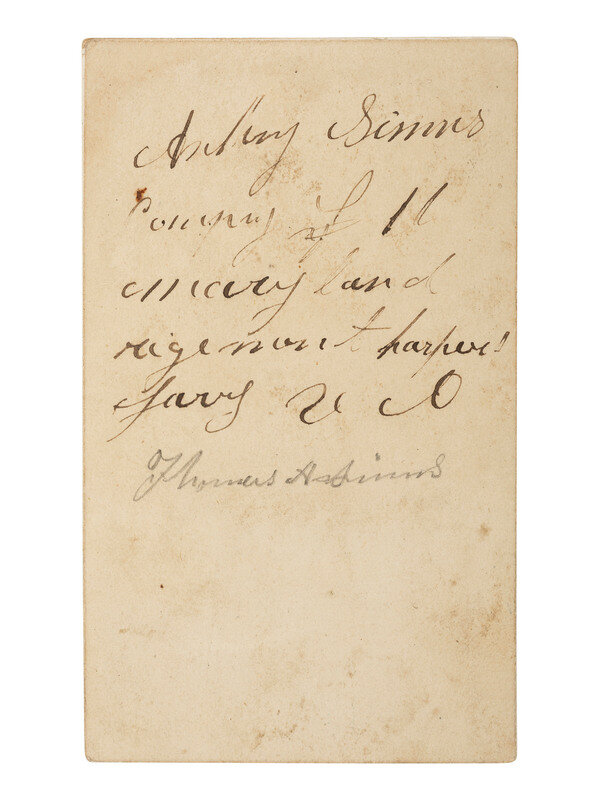 Antony Simms
Compny of 11
maryland
rigemont harpers
farry
Thomas A Simms